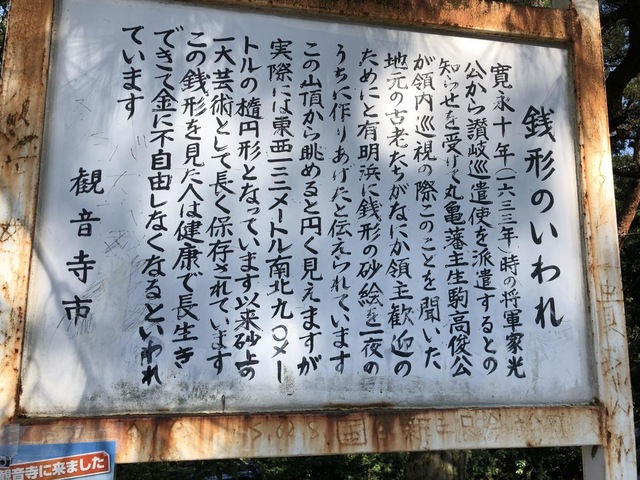 銭形のいわれ
寛永十年(一六三三年)時の将軍家光
公から讃岐巡遣使を派遣するとの
知らせを受けて丸亀藩主生駒高俊公
が領内巡視の際このことを聞いた
地元の古老たちがなにか領主歓迎の
ためにと有明浜に銭形の砂絵を一夜の
うちに作りあげたと伝えられています
この山頂から眺めると円く見えますが
実際には東西一二二メートル南北九〇メー
トルの楕円形となっています以来砂上の
一大芸術として長く保存されています
この銭形を見た人は健康で長生き
できて金に不自由しなくなるといわれ
ています
観音寺市
観音寺に来ました